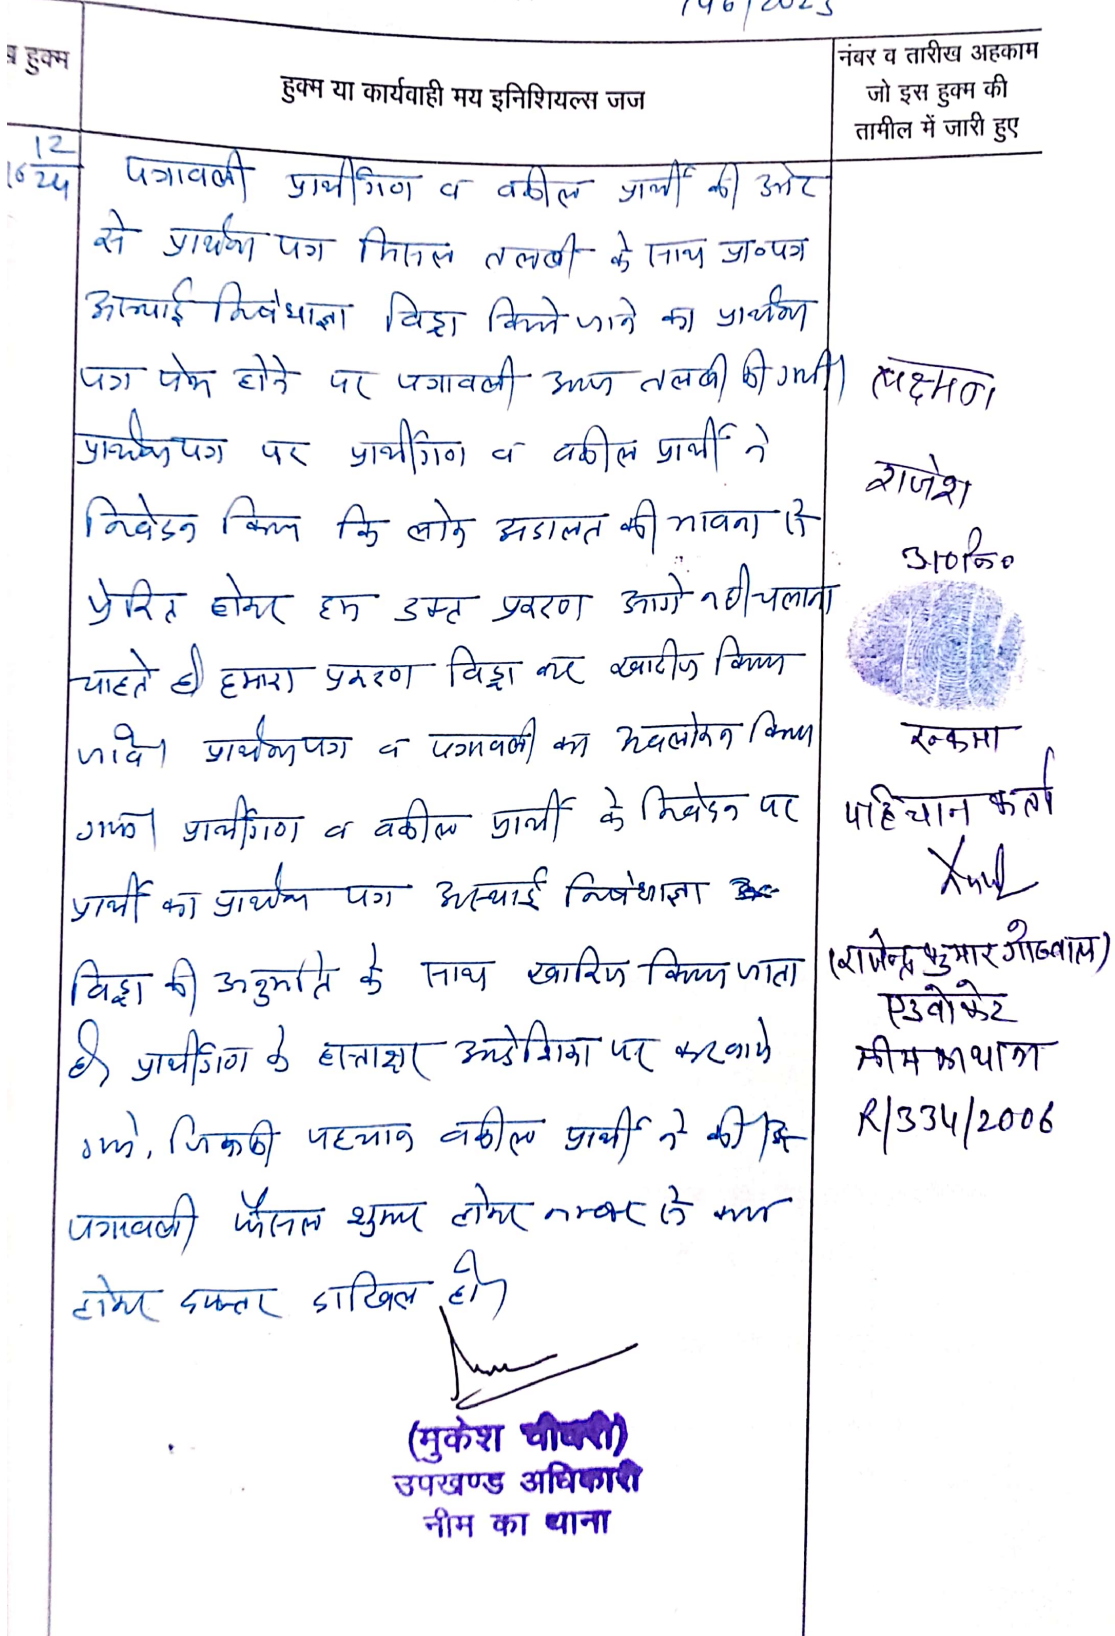 196/2023
हुक्म
हुक्म या कार्यवाही मय इनिशियल्स जज
नंबर व तारीख अहकाम
जो इस हुक्म की
तामील में जारी हुए
16/12/24
पत्रावली प्रार्थीगण व वकील प्रार्थी की ओर
से प्रार्थना पत्र मिसल तलबी के साथ प्रा०पत्र
अस्थाई निषेधाज्ञा विड्रा किये जाने का प्रार्थना
पत्र पेश होने पर पत्रावली आज तलबी की गयी।
प्रार्थना पत्र पर प्रार्थीगण व वकील प्रार्थी ने
निवेदन किया कि लोक अदालत की भावना से
प्रेरित होकर हम उक्त प्रकरण आगे नही चलाना
चाहते है। हमारा प्रकरण विड्रा कर खारीज किया
जावे। प्रार्थना पत्र व पत्रावली का अवलोकन किया
गया। प्रार्थीगण व वकील प्रार्थी के निवेदन पर
प्रार्थी का प्रार्थना पत्र अस्थाई निषेधाज्ञा
विड्रा की अनुमति के साथ खारिज किया जाता
है। प्रार्थीगण के हस्ताक्षर आदेशिका पर करवाये
गये, जिनकी पहचान वकील प्रार्थी ने की।
पत्रावली फैसल शुमार होकर नम्बर से कम
होकर दफ्तर दाखिल हो।
लक्ष्मण
राजेश
अ०नि०
रुकमा
पहिचान कर्ता
(राजेन्द्र कुमार गोठवाल)
एडवोकेट
नीम का थाना
R/334/2006
(मुकेश चौधरी)
उपखण्ड अधिकारी
नीम का थाना